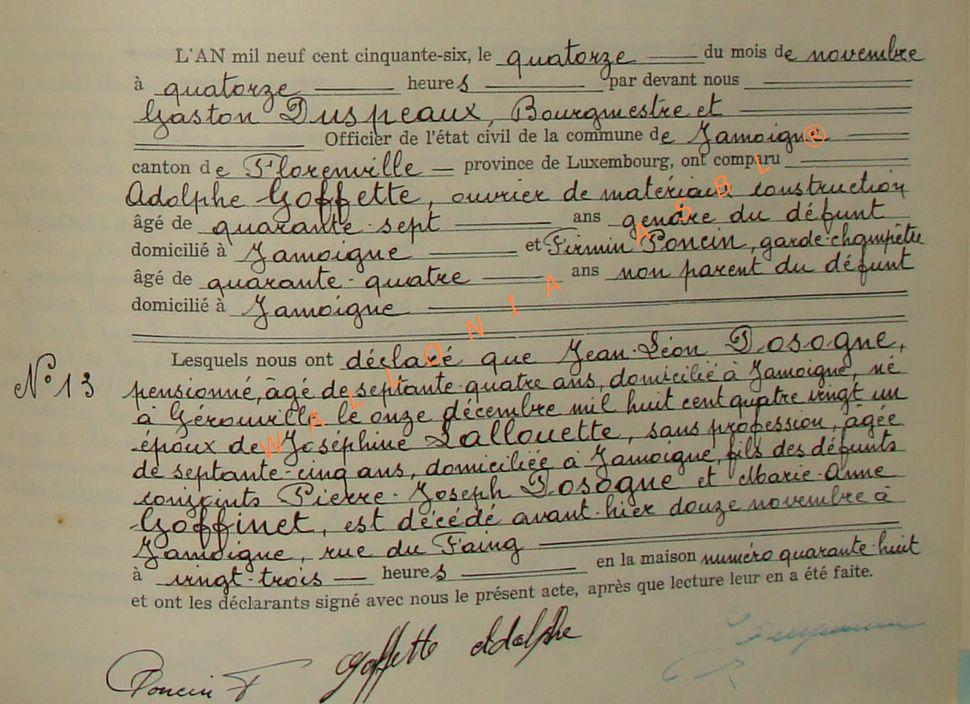 L'AN mil neuf cent cinquante-six, le quatorze du mois de novembre
à quatorze heures par devant nous
Gaston Duspeaux, Bourgmestre et
Officier de l'état civil de la commune de Jamoigne
canton de Florenville province de Luxembourg, ont comparu
Adolphe Goffette, ouvrier de matériaux construction
âgé de quarante-sept ans gendre du défunt
domicilié à Jamoigne et Firmin Poncin, garde-champêtre
âgé de quarante-quatre ans non parent du défunt
domicilié à Jamoigne
Lesquels nous ont déclaré que Jean-Léon Dosogne,
N° 13
pensionné, âgé de septante-quatre ans, domicilié à Jamoigne, né
à Gérouville le onze décembre mil huit cent quatre vingt un
époux de Joséphine Lallouette, sans profession, âgée
de septante-cinq ans, domiciliée à Jamoigne, fils des défunts
conjoints Pierre-Joseph Dosogne et Marie-Anne
Goffinet, est décédé avant-hier douze novembre à
Jamoigne, rue du Faing
à vingt-trois heures en la maison numéro quarante-huit
et ont les déclarants signé avec nous le présent acte, après que lecture leur en a été faite.
Poncin F Goffette Adolphe
WALLONIA ASBL ®